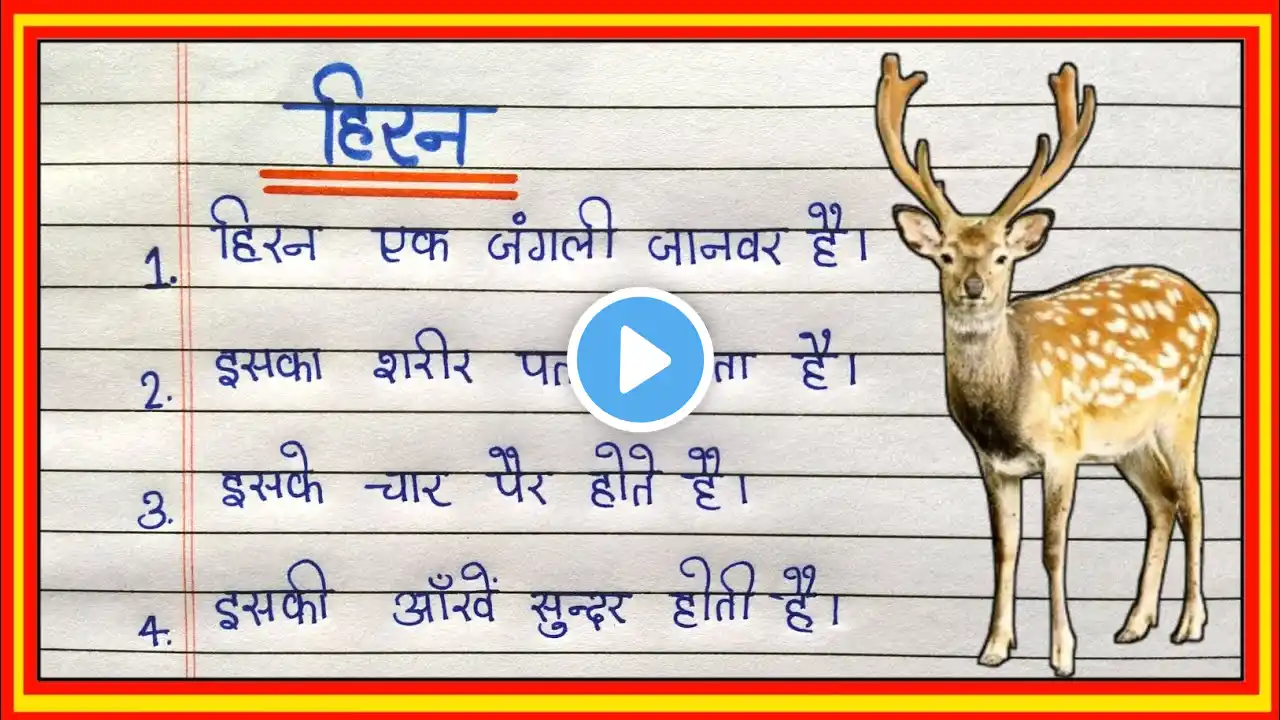 हिरन
1. हिरन एक जंगली जानवर है।
2. इसका शरीर है।
3. इसके चार पैर होते है।
4. इसकी आँखें सुन्दर होती है।